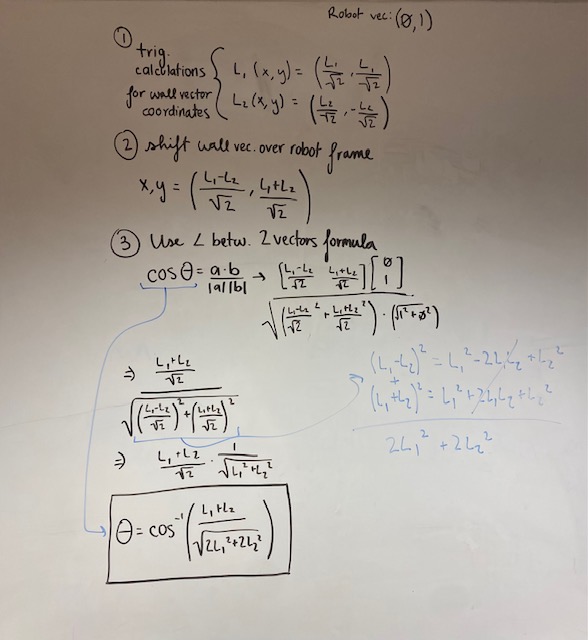 Robot vec: (0,1)
① trig. calculations for wall vector coordinates { L₁(x,y) = (L₁/√2, L₁/√2)
L₂(x,y) = (L₂/√2, -L₂/√2)
② shift wall vec. over robot frame
x,y = ((L₁-L₂)/√2, (L₁+L₂)/√2)
③ Use ∠ betw. 2 vectors formula
cos θ = a·b/|a||b| → [(L₁-L₂)/√2 (L₁+L₂)/√2] [0 1] / √(((L₁-L₂)/√2 ² + (L₁+L₂)/√2 ²) · (√1²+0²)
⇒ ((L₁+L₂)/√2) / √(((L₁-L₂)/√2)² + ((L₁+L₂)/√2)²)
⇒ (L₁+L₂)/√2 · 1/√(L₁²+L₂²)
θ = cos⁻¹((L₁+L₂)/√(2L₁²+2L₂²))
(L₁-L₂)² = L₁² - 2L₁L₂ + L₂²
+
(L₁+L₂)² = L₁² + 2L₁L₂ + L₂²
2L₁² + 2L₂²